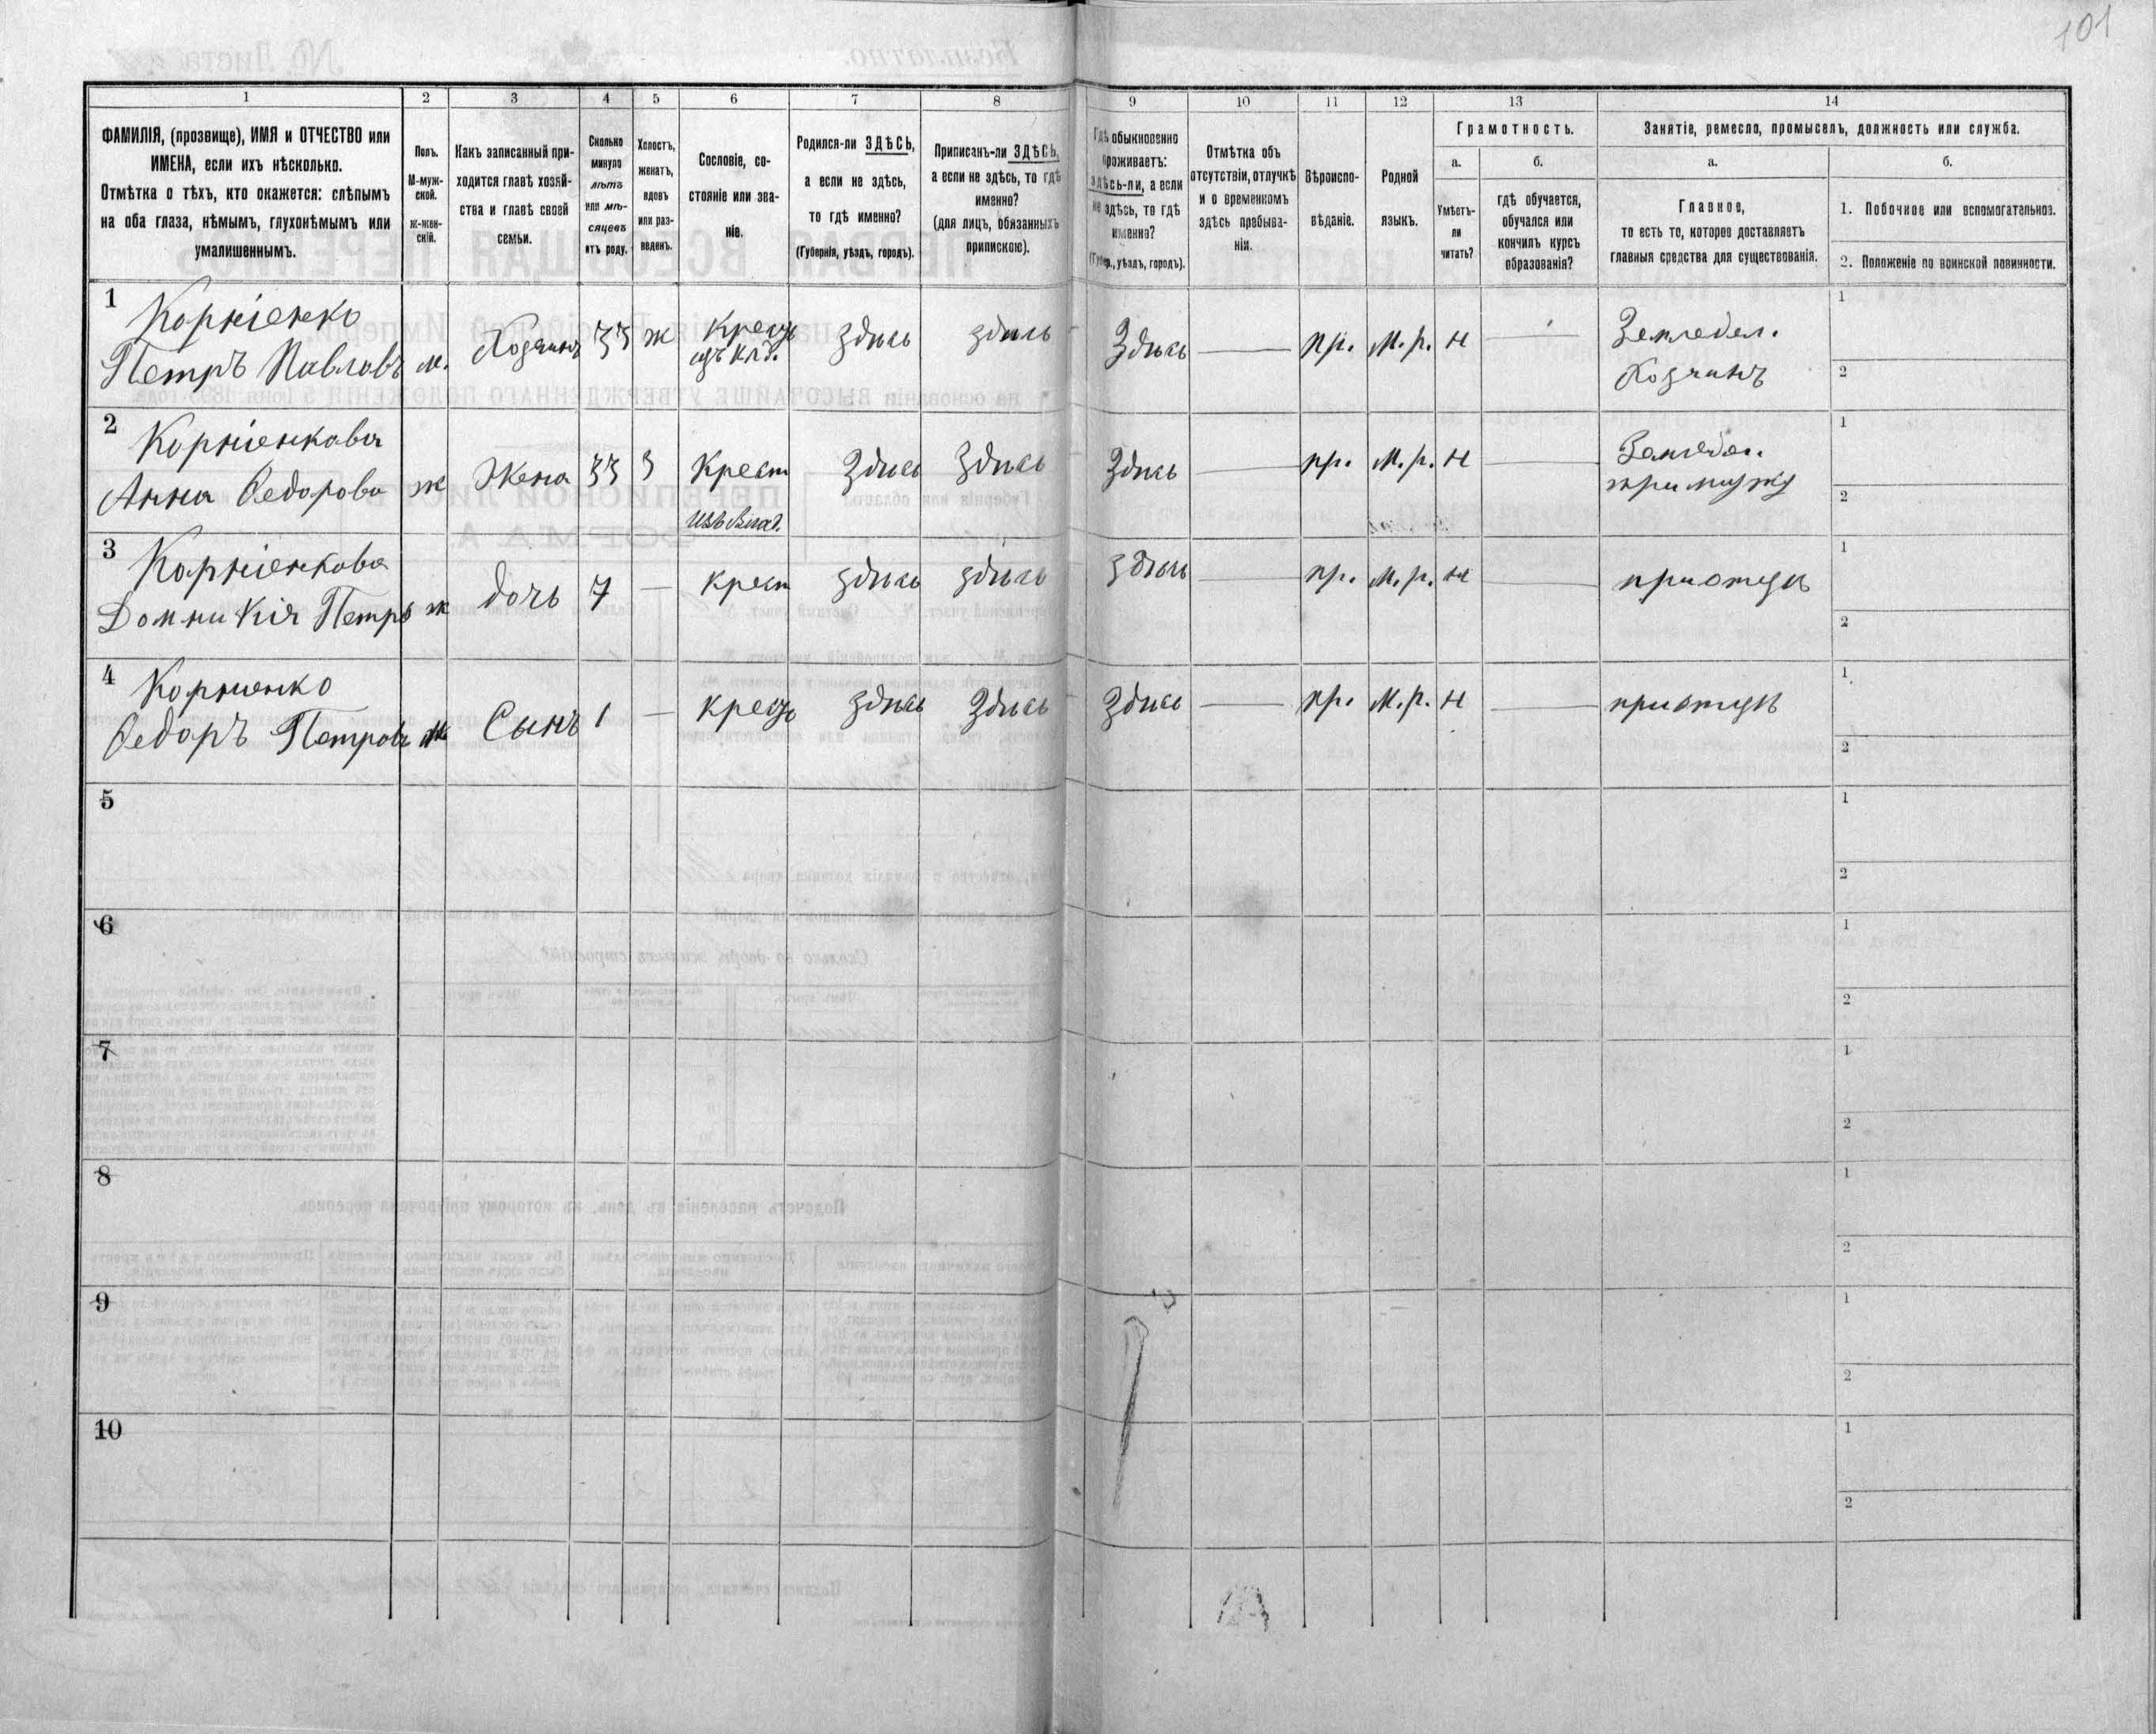 101
1 2 3 4 5 6 7 8 9 10 11 12 13 14
ФАМИЛІЯ, (прозвище), ИМЯ и ОТЧЕСТВО или
ИМЕНА, если ихъ нѣсколько.
Отмѣтка о тѣхъ, кто окажется: слѣпымъ
на оба глаза, нѣмымъ, глухонѣмымъ или
умалишеннымъ.
Полъ.
М-муж-
ской.
ж-жен-
скій.
Какъ записанный при-
ходится главѣ хозяй-
ства и главѣ своей
семьи.
Сколько
минуло
лѣтъ
или мѣ-
сяцевъ
отъ роду.
Холостъ,
женатъ,
вдовъ
или раз-
веденъ.
Сословіе, со-
стояніе или зва-
ніе.
Родился-ли ЗДѢСЬ,
а если не здѣсь,
то гдѣ именно?
(Губернія, уѣздъ, городъ).
Приписанъ-ли ЗДѢСЬ,
а если не здѣсь, то гдѣ
именно?
(для лицъ, обязанныхъ
припискою).
Гдѣ обыкновенно
проживаетъ:
здѣсь-ли, а если
не здѣсь, то гдѣ
именно?
(Губер., уѣздъ, городъ).
Отмѣтка объ
отсутствіи, отлучкѣ
и о временномъ
здѣсь пребыва-
ніи.
Вѣроиспо-
вѣданіе.
Родной
языкъ.
Грамотность.
а.
Умѣетъ-
ли
читать?
б.
гдѣ обучается,
обучался или
кончилъ курсъ
образованія?
Занятіе, ремесло, промыселъ, должность или служба.
а.
Главное,
то есть то, которое доставляетъ
главныя средства для существованія.
б.
1. Побочное или вспомогательное.
2. Положеніе по воинской повинности.
1 Корніенко
Петръ Павловъ м. Хозяинъ 33 ж Крест здѣсь здѣсь Здѣсь — пр. М.р. н — Земледел.
Хозяинъ
1
2
2 Корніенкова
Анна Федорова ж Жена 33 З Крест Здѣсь Здѣсь Здѣсь — пр. М.р. н — Земледел.
изъ влад. при мужу
1
2
3 Корніенкова
Домникія Петров ж дочь 7 — крест здѣсь здѣсь здѣсь — пр. М.р. н — при отцѣ
1
2
4 Корниенко
Федоръ Петровъ м Сынъ 1 — крест здѣсь Здѣсь Здѣсь — пр. М.р. н — при отцѣ
1
2
5
1
2
6
1
2
7
1
2
8
1
2
9
1
2
10
1
2